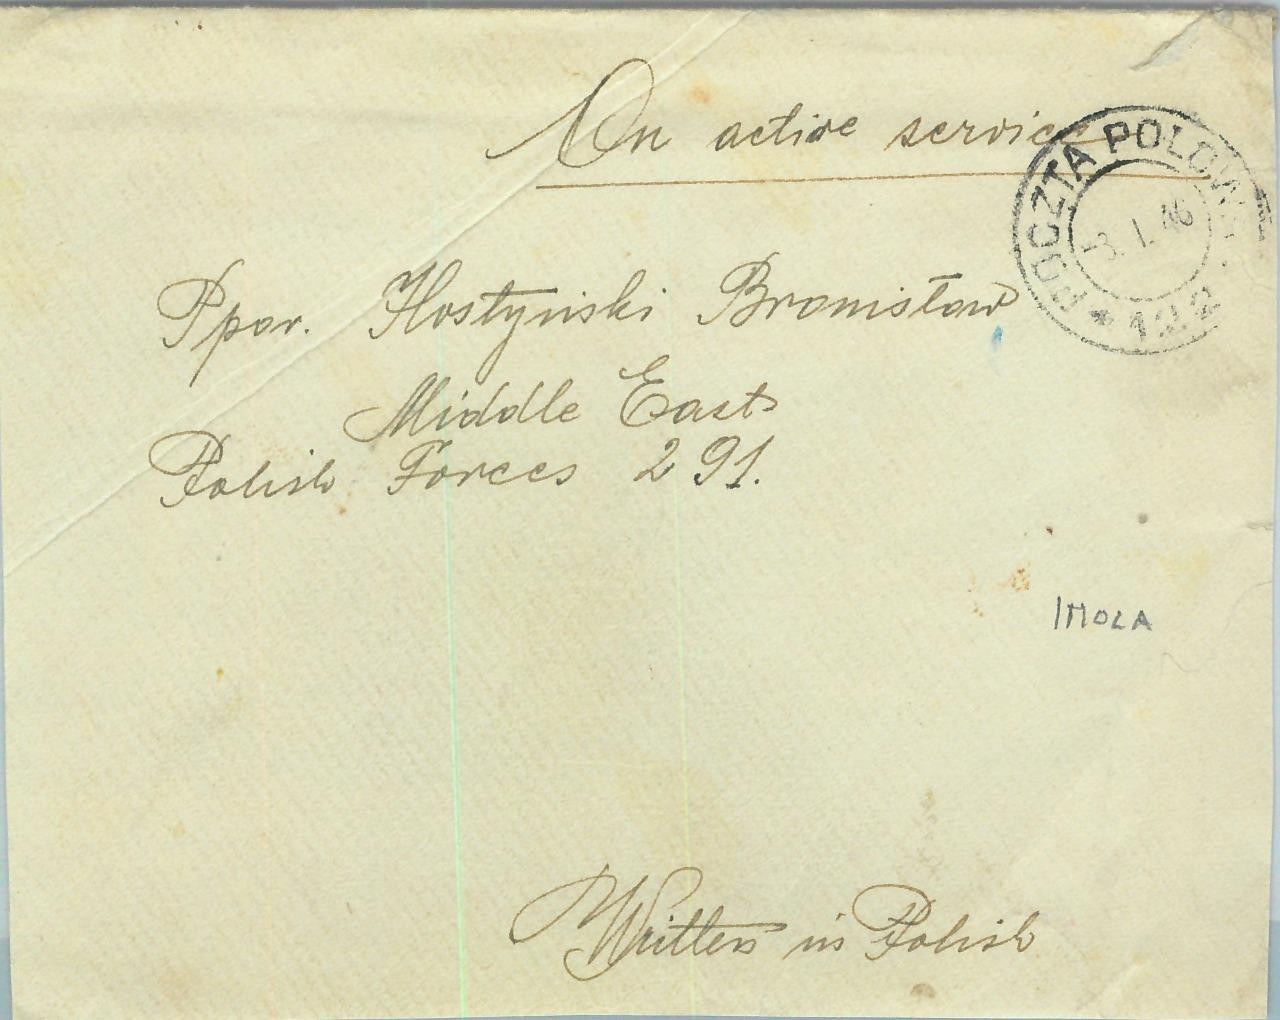 On active service
POCZTA POLOWA * 122
-3. I. 46
Ppor. Hostyński Bronisław
Middle East
Polish Forces 291.
IMOLA
Written in Polish